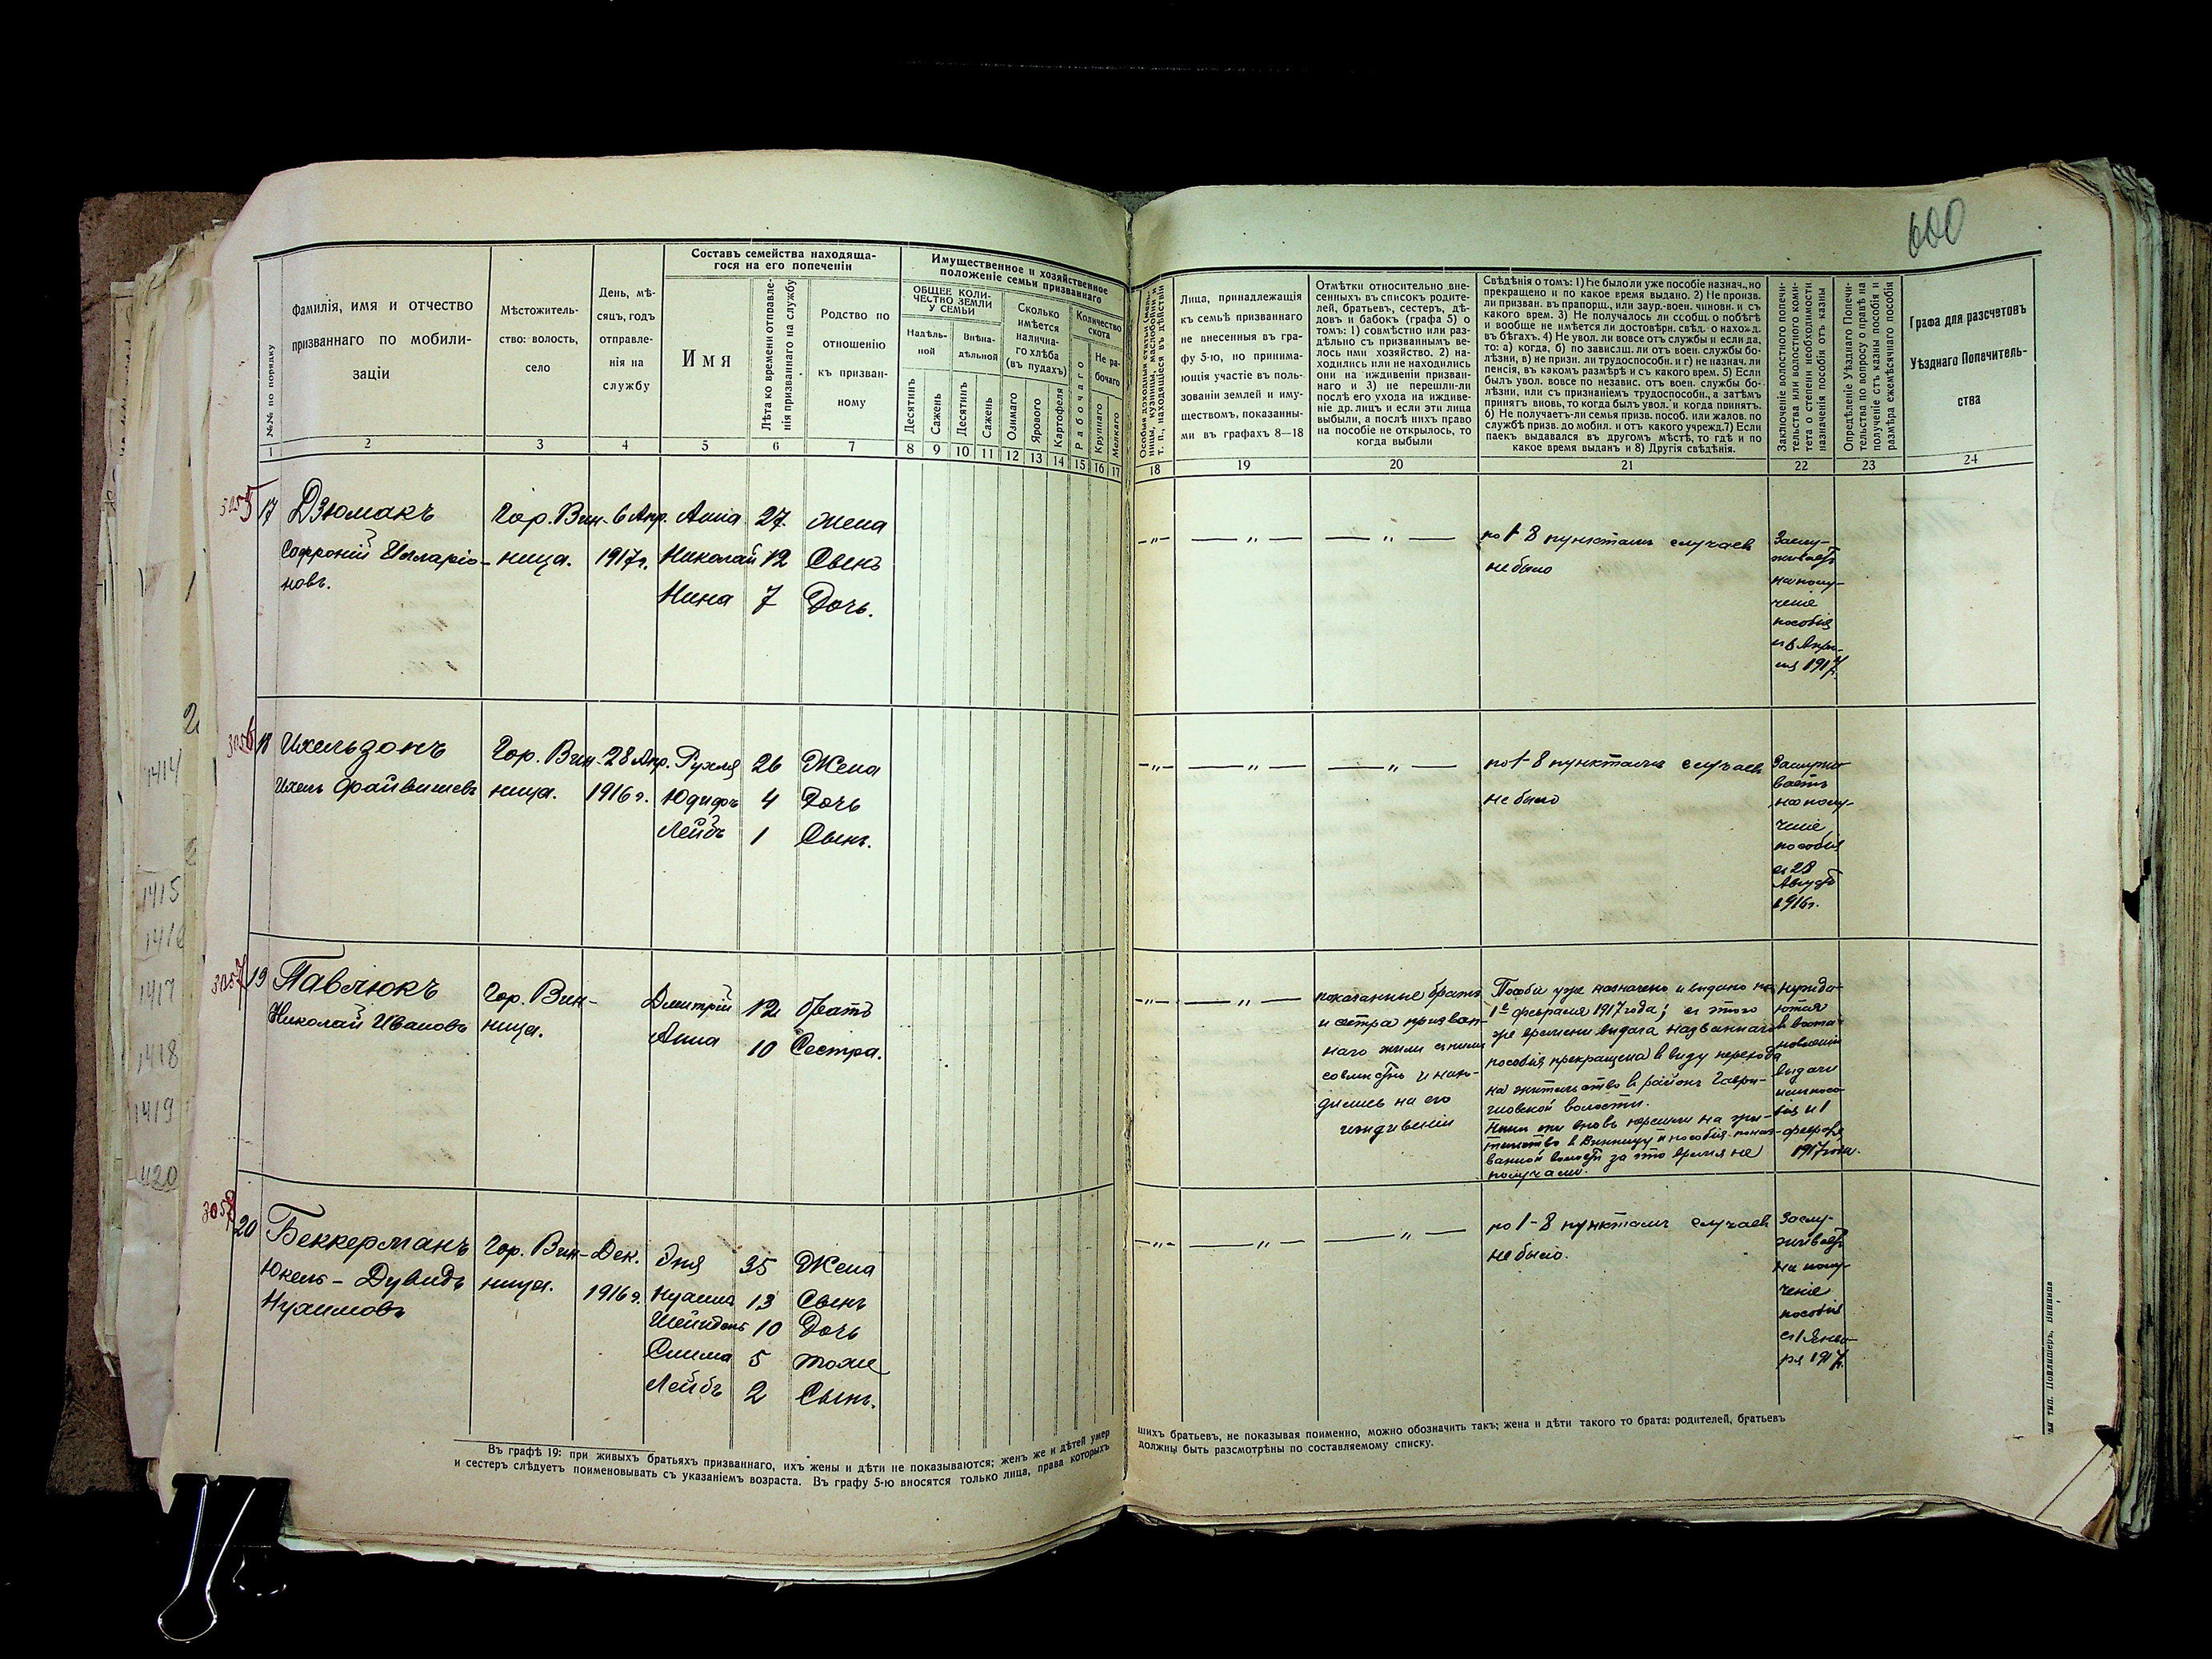 600
Составъ семейства находяща-
гося на его попеченіи
Имущественное и хозяйственное
положеніе семьи призваннаго
№№ по порядку
Фамилія, имя и отчество
призваннаго по мобили-
заціи
Мѣстожитель-
ство: волость,
село
День, мѣ-
сяцъ, годъ
отправле-
нія на
службу
Имя
Лѣта ко времени отправле-
нія призваннаго на службу
Родство по
отношенію
къ призван-
ному
ОБЩЕЕ КОЛИ-
ЧЕСТВО ЗЕМЛИ
У СЕМЬИ
Надѣль-
ной
Внѣна-
дѣльной
Десятинъ
Сажень
Десятинъ
Сажень
Сколько
имѣется
налична-
го хлѣба
(въ пудахъ)
Озимаго
Ярового
Картофеля
Количество
скота
Рабочаго
Не ра-
бочаго
Крупнаго
Мелкаго
т. п., находящіеся въ дѣйствіи
Лица, принадлежащія
къ семьѣ призваннаго
не внесенныя въ гра-
фу 5-ю, но принима-
ющія участіе въ поль-
зованіи землей и иму-
ществомъ, показанны-
ми въ графахъ 8—18
Отмѣтки относительно вне-
сенныхъ въ списокъ родите-
лей, братьевъ, сестеръ, дѣ-
довъ и бабокъ (графа 5) о
томъ: 1) совмѣстно или раз-
дѣльно съ призваннымъ ве-
лось ими хозяйство. 2) на-
ходились или не находились
они на иждивеніи призван-
наго и 3) не перешли-ли
послѣ его ухода на иждиве-
ніе др. лицъ и если эти лица
выбыли, а послѣ нихъ право
на пособіе не открылось, то
когда выбыли
Свѣдѣнія о томъ: 1) Не было ли уже пособіе назнач., но
прекращено и по какое время выдано. 2) Не произв.
ли призван. въ прапорщ. или заур.-воен. чиновн. и съ
какого врем. 3) Не получалось ли сообщ. о побѣгѣ
и вообще не имѣется ли достовѣрн. свѣд. о нахожд.
въ бѣгахъ. 4) Не увол. ли вовсе отъ службы и если да,
то: а) когда, б) по зависящ. ли отъ воен. службы бо-
лѣзни, в) не призн. ли трудоспособн. и г) не назнач. ли
пенсія, въ какомъ размѣрѣ и съ какого врем. 5) Если
былъ увол. вовсе по независ. отъ воен. службы бо-
лѣзни, или съ признаніемъ трудоспособн., а затѣмъ
принятъ вновь, то когда былъ увол. и когда принятъ.
6) Не получаетъ-ли семья призв. пособ. или жалов. по
службѣ призв. до мобил. и отъ какого учрежд. 7) Если
паекъ выдавался въ другомъ мѣстѣ, то гдѣ и по
какое время выданъ и 8) Другія свѣдѣнія.
Заключеніе волостного попечи-
тельства или волостного коми-
тета о степени необходимости
назначенія пособія отъ казны
Опредѣленіе Уѣзднаго Попечи-
тельства по вопросу о правѣ на
полученіе отъ казны пособія и
размѣра ежемѣсячнаго пособія
Графа для разсчетовъ
Уѣзднаго Попечитель-
ства
1 2 3 4 5 6 7 8 9 10 11 12 13 14 15 16 17 18 19 20 21 22 23 24
3055 17 Дзюмакъ Гор. Вин- 6 Апр. Анна 27 жена
Софроній Илларіо- ница. 1917г. Николай 12 Сынъ
новъ. Нина 7 Дочь.
—"— —"— —"— по 1-8 пунктамъ случаевъ
не было
Заслу-
живаетъ
на полу-
ченіе
пособія
съ 6 Апрѣ-
ля 1917г.
3056 18 Ихельзонъ Гор. Вин- 28 Апр. Рухля 26 Жена
Ихель Файвишевъ ница. 1916 г. Юдифь 4 Дочь
Лейбъ 1 Сынъ.
—"— —"— —"— по 1-8 пунктамъ случаевъ
не было
Заслужи-
ваетъ
на полу-
ченіе
пособія
съ 28
Августа
1916г.
3057 19 Павлюкъ Гор. Вин- Дмитрій 12 братъ
Николай Ивановъ ница. Анна 10 Сестра.
—"— —"—
показанные братъ
и сестра призван-
наго жили съ нимъ
совмѣстно и нахо-
дились на его
иждивеніи
Пособіе уже назначено и выдано по
1е февраля 1917 года; съ этого
же времени выдача названнаго
пособія прекращена въ виду перехода
на жительство въ районъ Гаври-
шовской волости.
Нынѣ они вновь перешли на жи-
тельство въ Винницу и пособія поимено-
ванной волости за это время не
получали.
нужда-
ются
въ возста-
новленіи
выдачи
имъ посо-
бія съ 1
февраля
1917 года.
3058 20 Беккерманъ Гор. Вин- Дек. Эня 35 Жена
Юкель-Дувидъ ница. 1916 г. 13 Сынъ
Нухимовъ 10 Дочь
Сима 5 тоже
Лейбъ 2 Сынъ.
—"— —"— —"— по 1-8 пунктамъ случаевъ
не было.
Заслу-
живаетъ
на полу-
ченіе
пособія
съ 1 Янва-
ря 1917г.
Въ графѣ 19: при живыхъ братьяхъ призваннаго, ихъ жены и дѣти не показываются; женъ же и дѣтей умер
шихъ братьевъ, не показывая поименно, можно обозначить такъ; жена и дѣти такого то брата: родителей, братьевъ
и сестеръ слѣдуетъ поименовывать съ указаніемъ возраста. Въ графу 5-ю вносятся только лица, права которыхъ
должны быть разсмотрѣны по составляемому списку.
1414
1415
1416
1417
1418
1419
1420